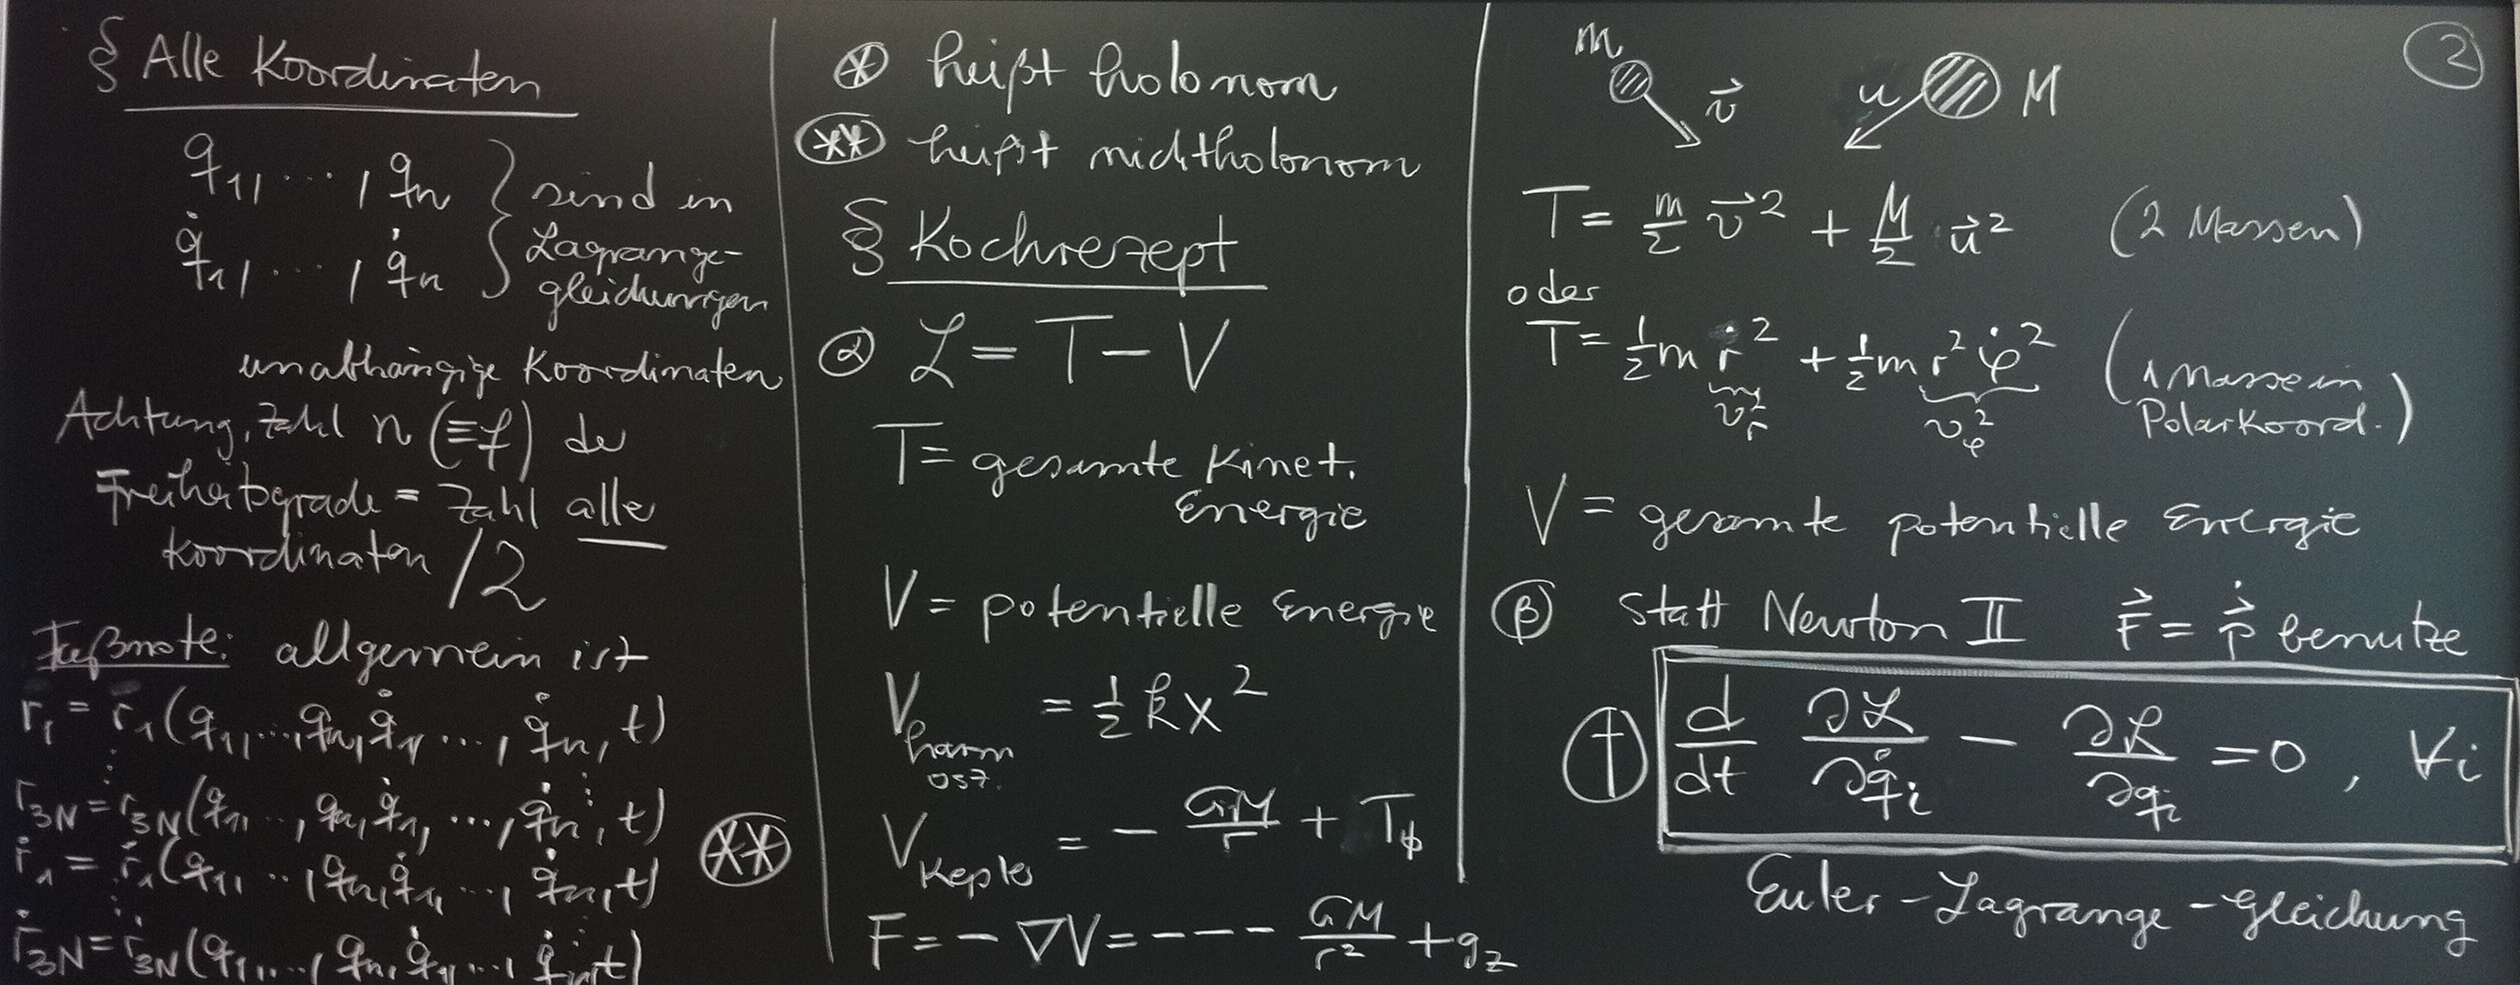 § Alle Koordinaten
q₁, ..., qₙ } sind in
q̇₁, ..., q̇ₙ } Lagrange-
gleichungen
unabhängige Koordinaten
Achtung, Zahl n (≡f) der
Freiheitsgrade = Zahl alle
Koordinaten /2
Fußnote: allgemein ist
r₁ = r₁(q₁, ..., qₙ, q̇₁, ..., q̇ₙ, t)
⋮
r₃N = r₃N(q₁, .., qₙ, q̇₁, ..., q̇ₙ, t)
ṙ₁ = ṙ₁(q₁, .., qₙ, q̇₁, ..., q̇ₙ, t)
⋮
ṙ₃N = ṙ₃N(q₁, ..., qₙ, q̇₁, ..., q̇ₙ, t)
(**)
(*) heißt holonom
(**) heißt nichtholonom
§ Kochrezept
(α) ℒ = T − V
T = gesamte Kinet.
Energie
V = potentielle Energie
V harm osz. = ½ k x²
V Kepler = − GM/r + Tϕ
F = − ∇V = − − − GM/r² + g_z
(2)
m v⃗ u M
T = m/2 v⃗² + M/2 u⃗² (2 Massen)
oder
T = ½ m ṙ² + ½ m r² φ̇² (1 Masse in
v_r² v_φ² Polarkoord.)
V = gesamte potentielle Energie
(β) statt Newton II F⃗ = ṗ⃗ benutze
(†) d/dt ∂ℒ/∂q̇ᵢ − ∂ℒ/∂qᵢ = 0 , ∀i
Euler-Lagrange-Gleichung